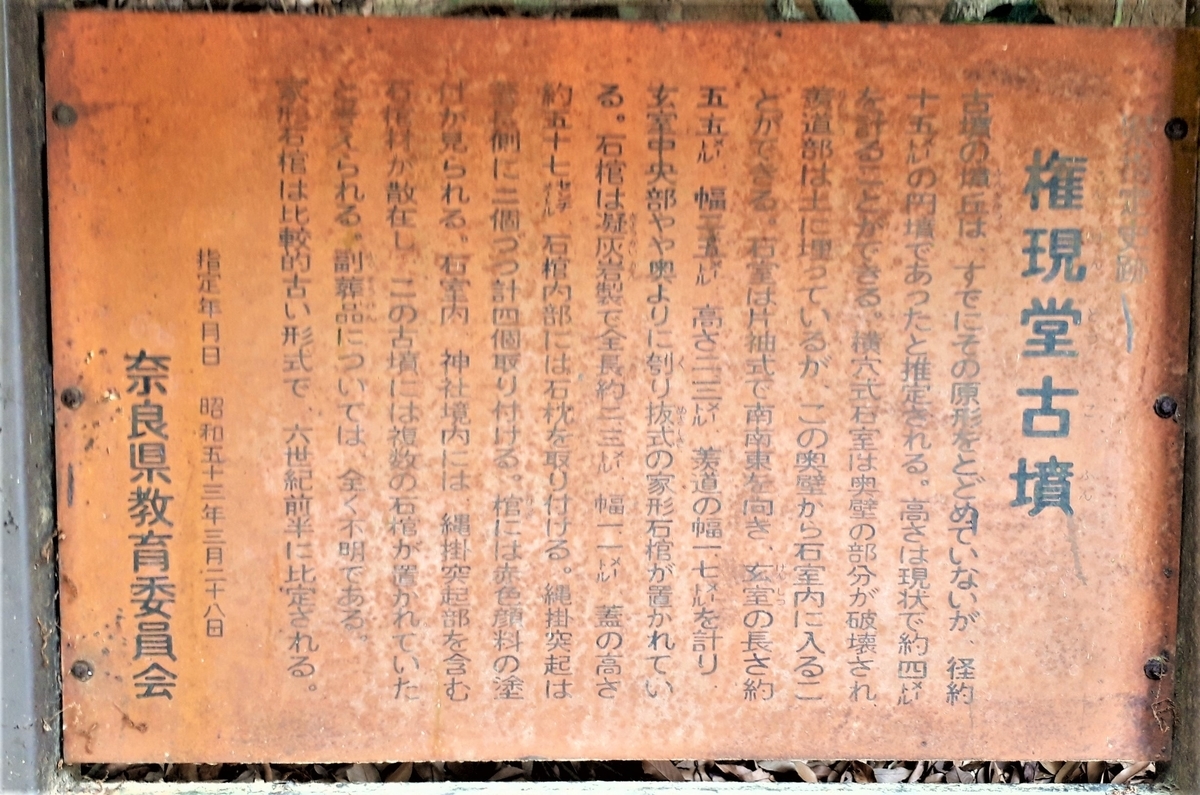 県指定史跡
権現堂古墳
古墳の墳丘は、すでにその原形をとどめていないが、径約
十五㍍の円墳であったと推定される。高さは現状で約四㍍
を計ることができる。横穴式石室は奥壁の部分が破壊され、
羨道部は土に埋っているが、この奥壁から石室内に入るこ
とができる。石室は片袖式で南南東を向き、玄室の長さ約
五・五㍍、幅三・五㍍、高さ三・三㍍、羨道の幅一・七㍍を計り、
玄室中央部やや奥よりに刳り抜式の家形石棺が置かれてい
る。石棺は凝灰岩製で全長約二・三㍍、幅一・一㍍、蓋の高さ
約五十七センチメートル、石棺内部には石枕を取り付ける。縄掛突起は
蓋長側に二個づつ計四個取り付ける。棺には赤色顔料の塗
付が見られる。石室内、神社境内には、縄掛突起部を含む
石棺材が散在し、この古墳には複数の石棺が置かれていた
と考えられる。副葬品については、全く不明である。
家形石棺は比較的古い形式で、六世紀前半に比定される。
指定年月日 昭和五十三年三月二十八日
奈良県教育委員会